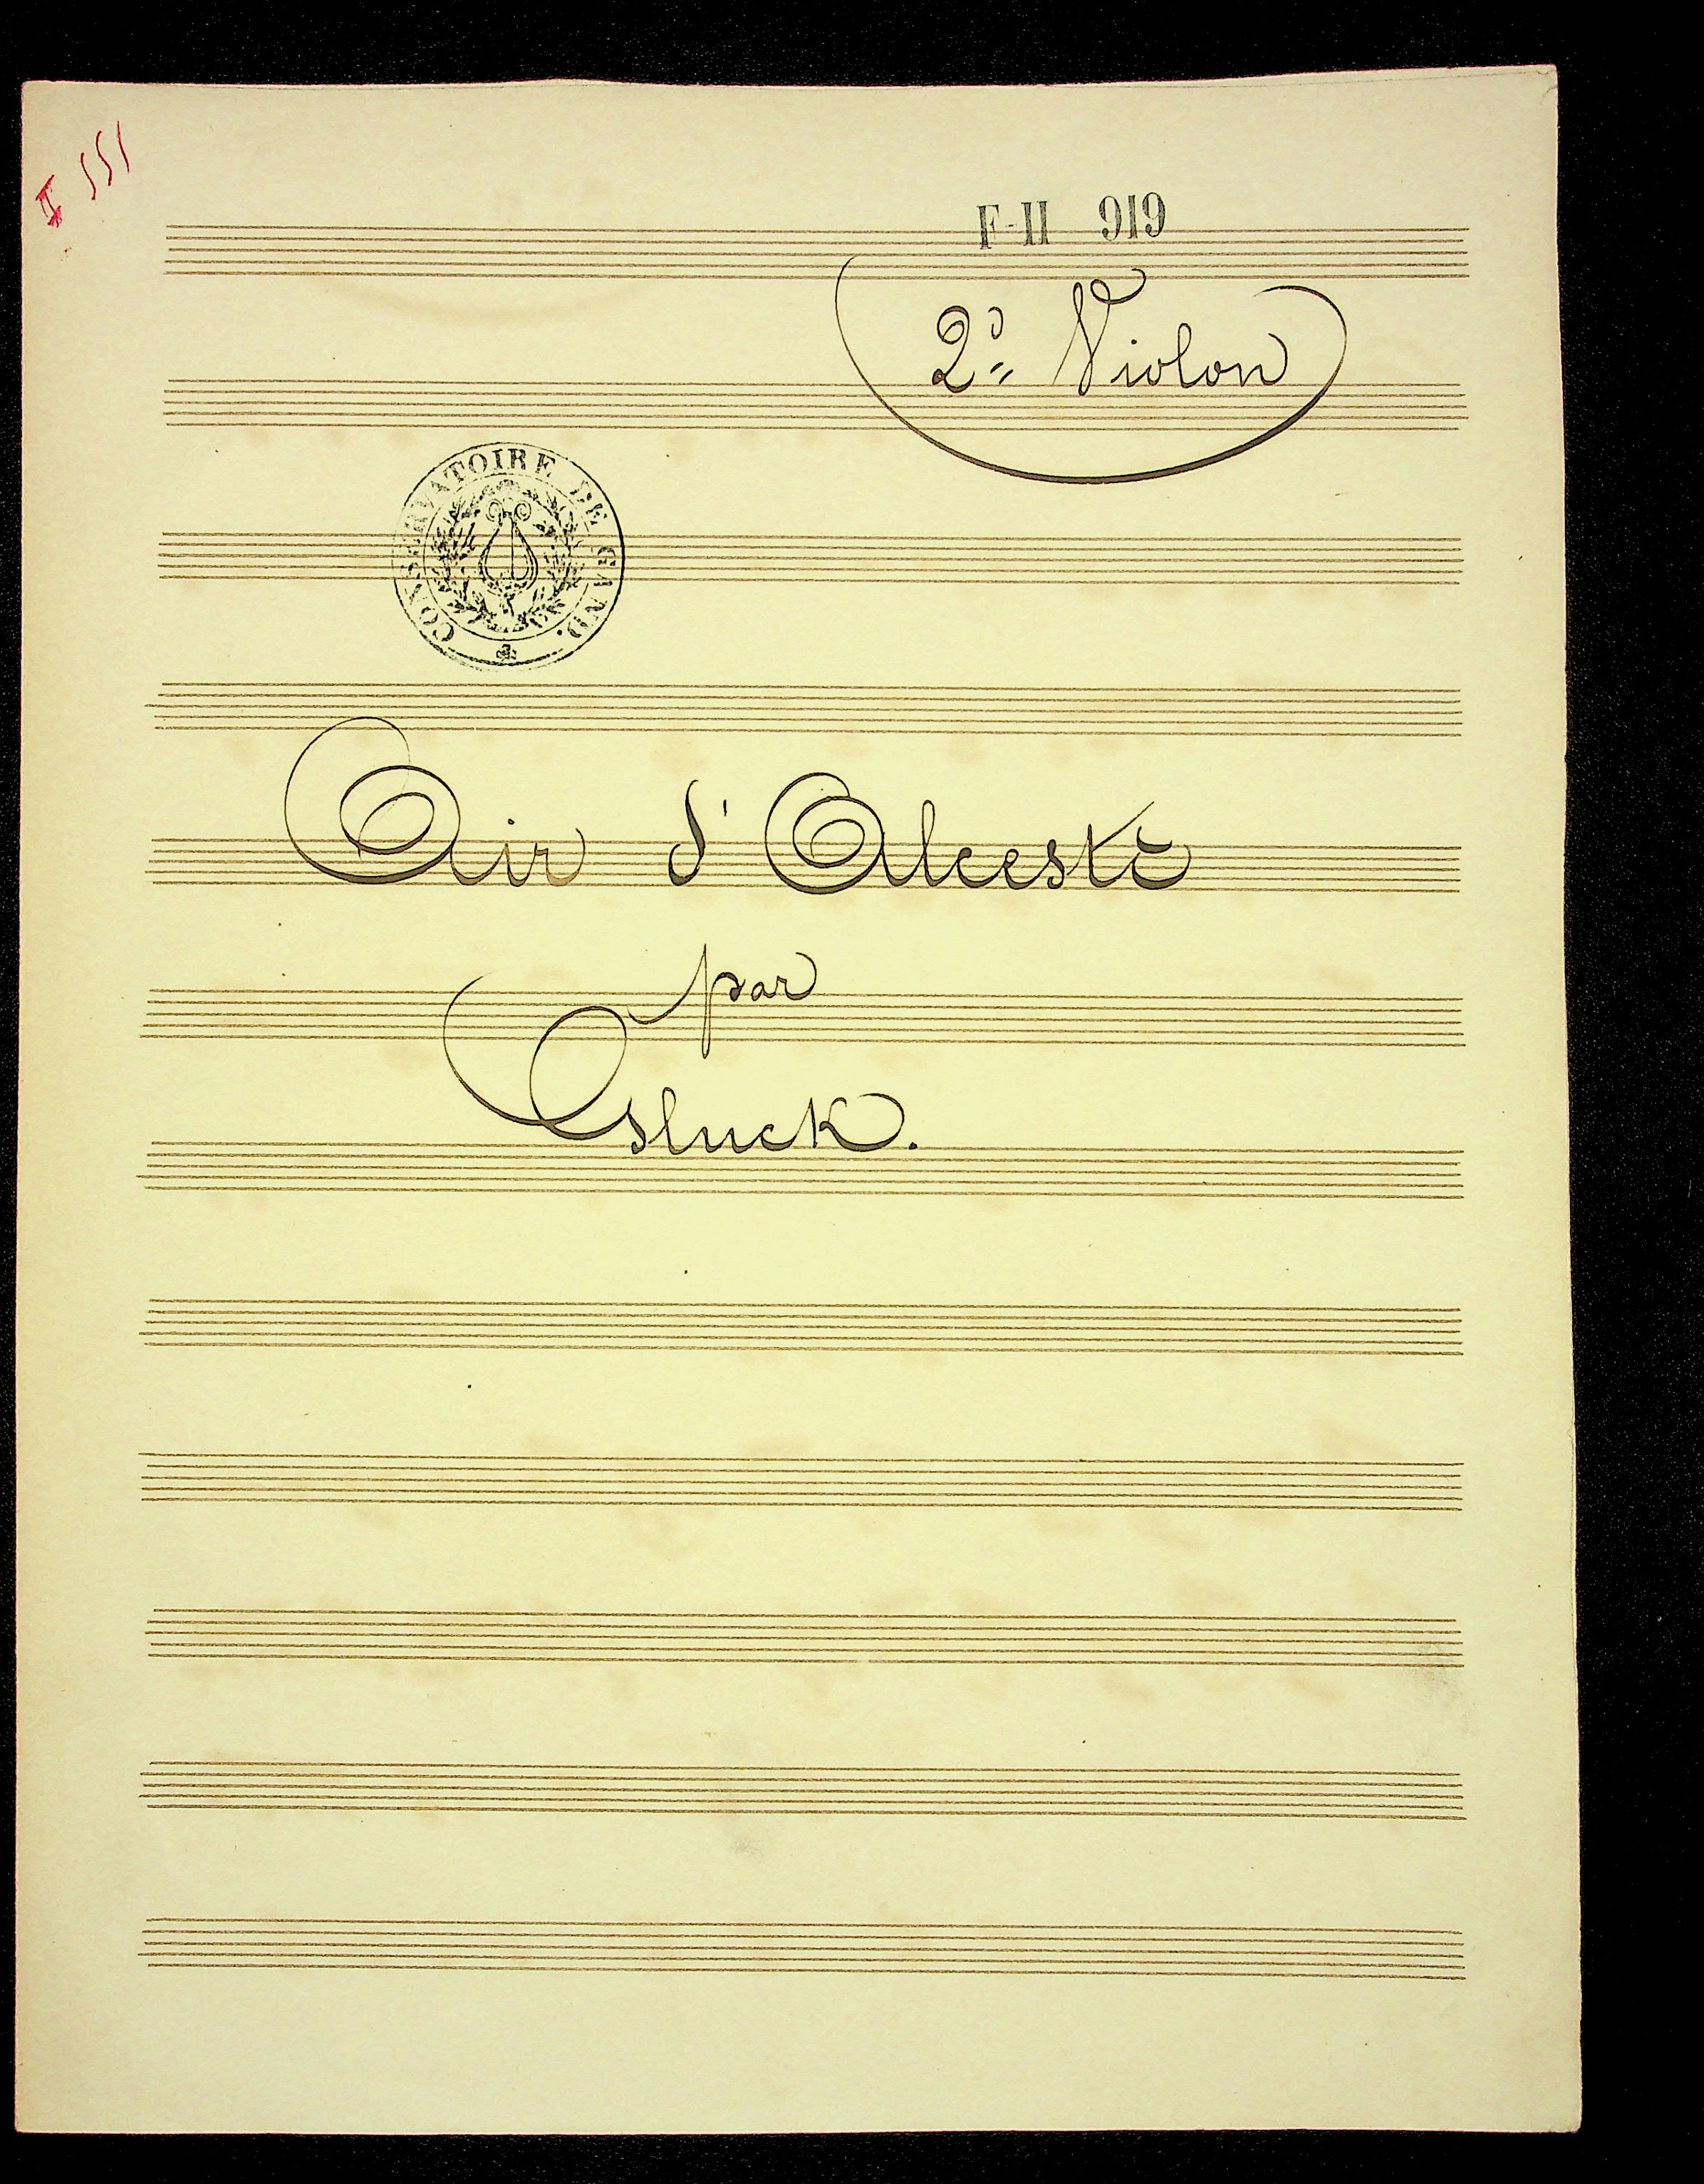 II 551
F-II 919
2d Violon
CONSERVATOIRE DE GAND.
Air d'Alceste
par
Gluck.